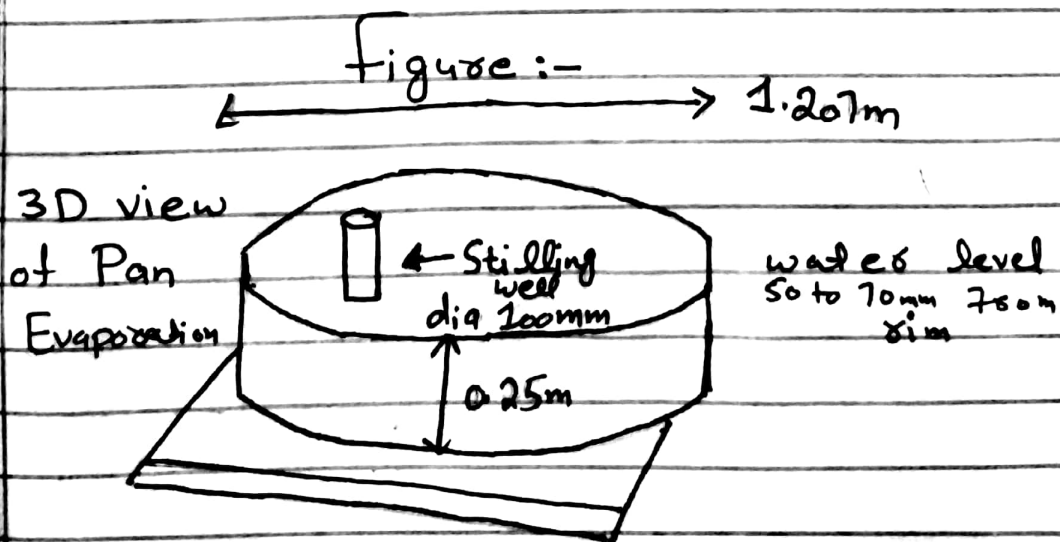 figure :-
1.207m
3D view
of Pan
Evaporation
← Stilling
well
dia 100mm
0.25m
water level
50 to 70mm from
rim